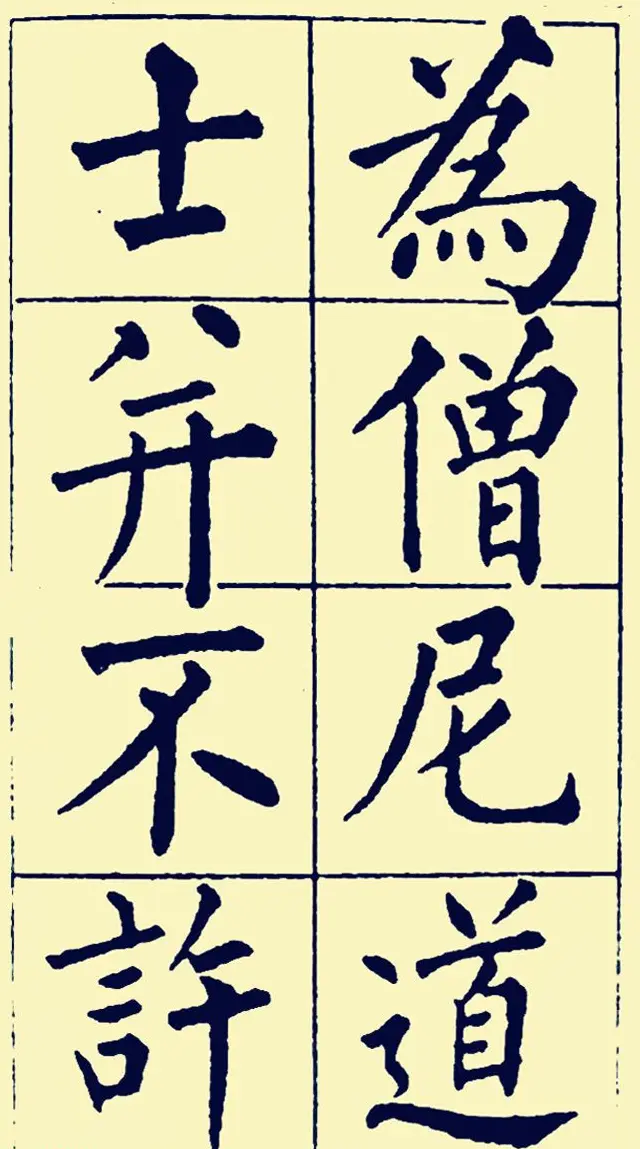 為僧尼道
士并不許